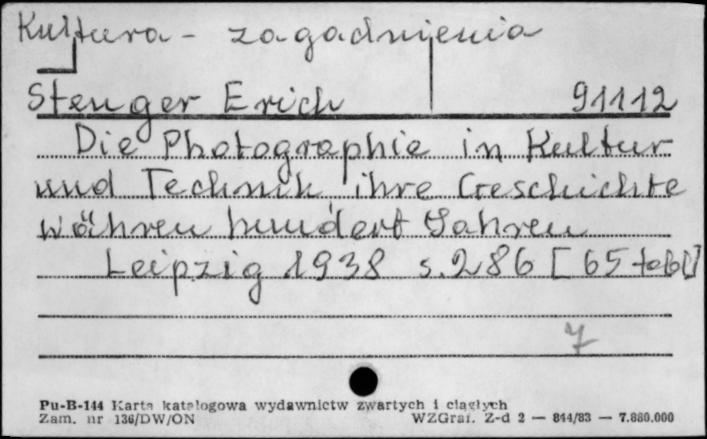 Kultura - zagadnienia
Stenger Erich 91112
Die Photographie in Kultur
und Technik ihre Geschichte
währen hundert Jahren
Leipzig 1938 s. 286 [65 tabl]
7
Pu-B-144 Karta katalogowa wydawnictw zwartych i ciągłych
Zam. nr 136/DW/ON WZGraf. Z-d 2 — 844/83 — 7.880.000